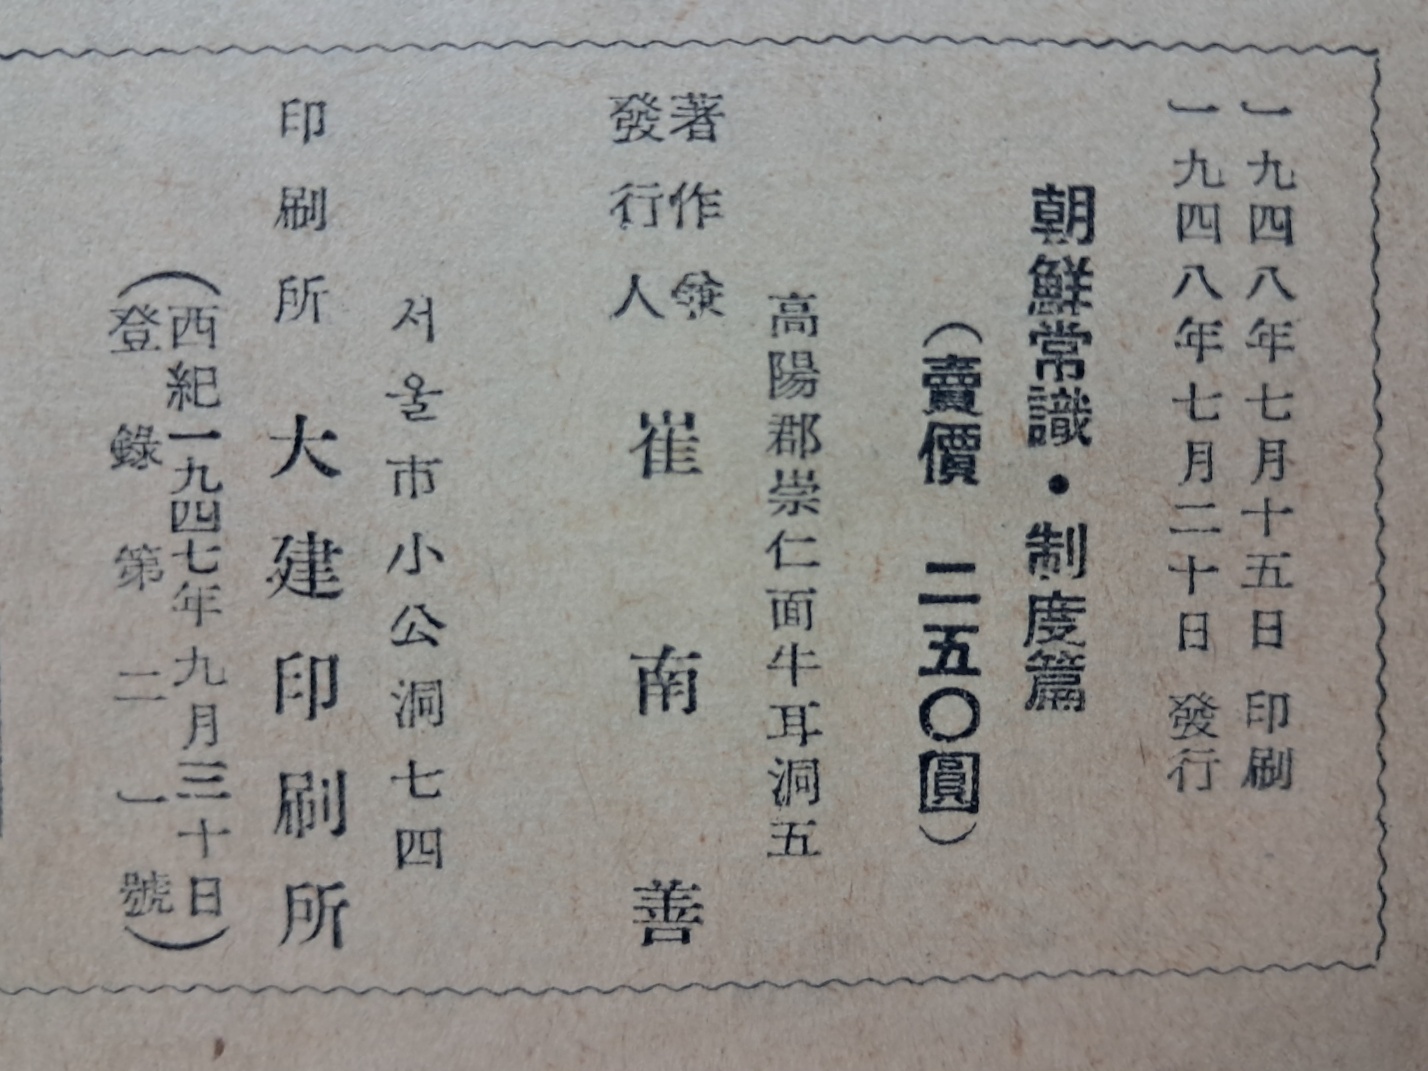 一九四八年七月十五日 印刷
一九四八年七月二十日 發行
朝鮮常識・制度篇
(賣價 二五〇圓)
高陽郡崇仁面牛耳洞五
著作兼
發行人 崔南善
서울市小公洞七四
印刷所 大建印刷所
(西紀一九四七年九月三十日
登錄第二一號)